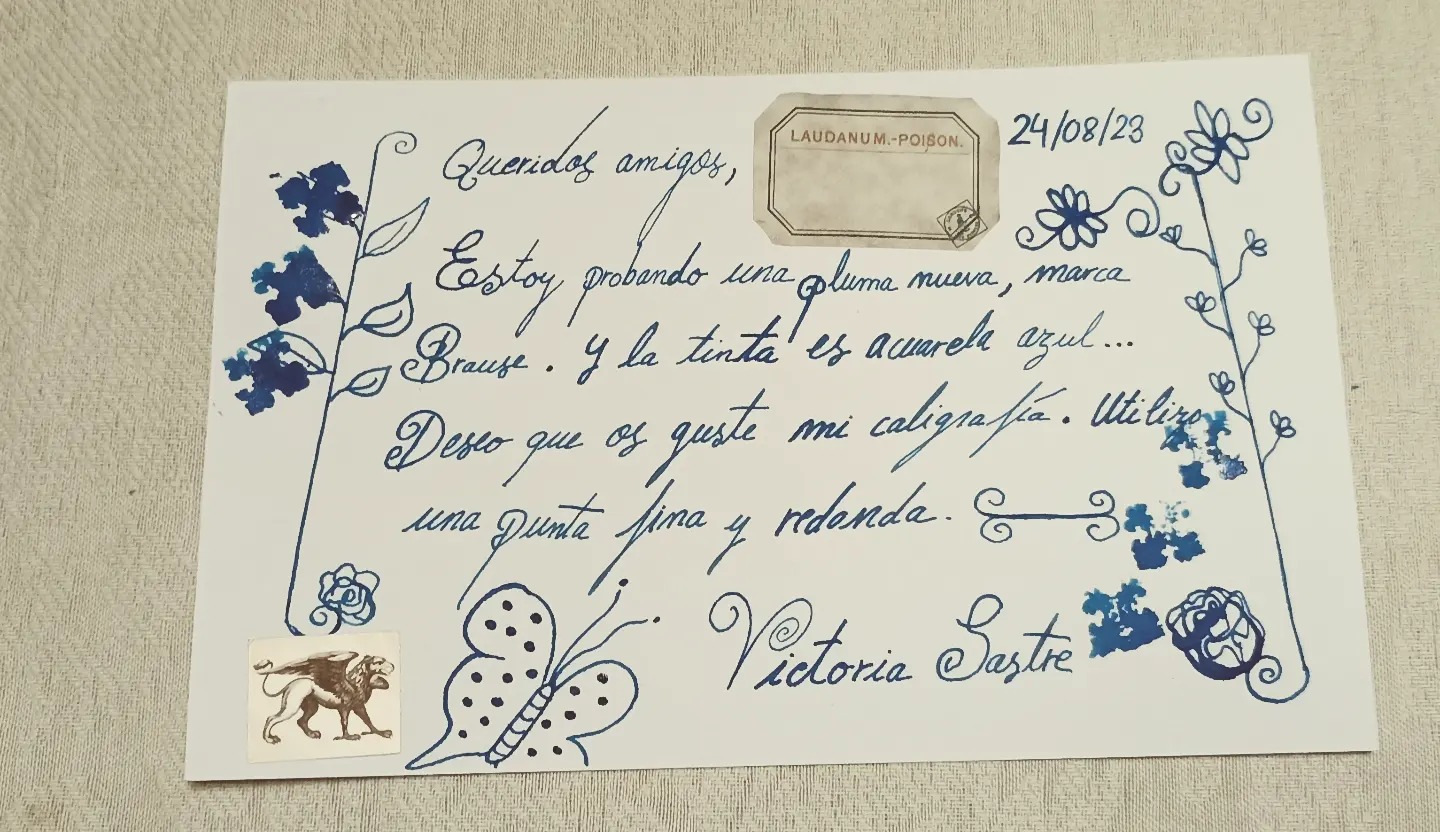 LAUDANUM.-POISON.
24/08/23
Queridos amigos,
Estoy probando una pluma nueva, marca
Brause. Y la tinta es acuarela azul...
Deseo que os guste mi caligrafía. Utilizo
una punta fina y redonda.
Victoria Sastre